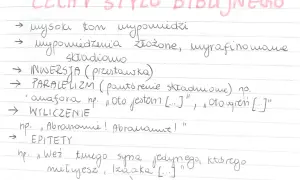 CECHY STYLU BIBLIJNEGO
→ wysoki ton wypowiedzi
→ wypowiedzenia złożone, wyrafinowane
składniowo
→ INWERSJA (przestawka)
→ PARALELIZM (powtórzenie składniowe) np.
anafora np. „Oto jestem [...]", „oto ogień [...]"
→ WYLICZENIE
np. „Abrahamie! Abrahamie!"
→ EPITETY
np. „Weź twego syna jedynego, którego
miłujesz, Izaaka [...]